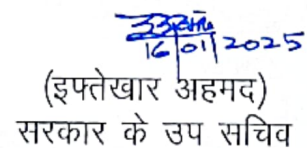 16/01/2025
(इफ्तेखार अहमद)
सरकार के उप सचिव